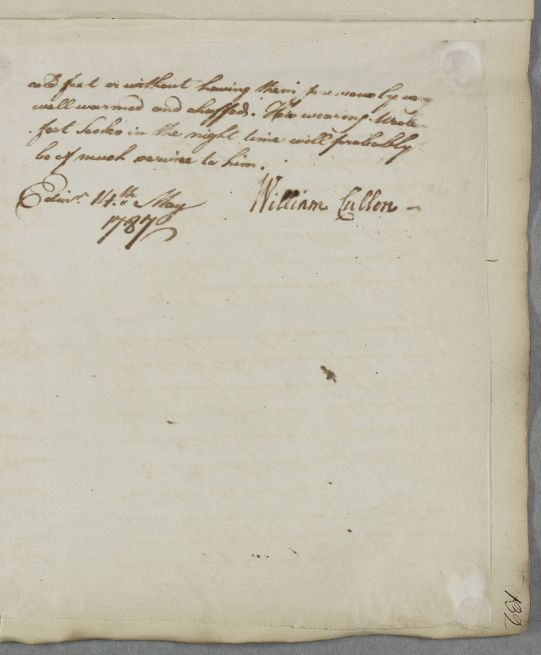 cold feet or without having them previously very
well warmed and chaffed. His wearing
foot Socks in the night time will probably
be of much service to him.
Edinr. 14.th May William Cullen
1787
132